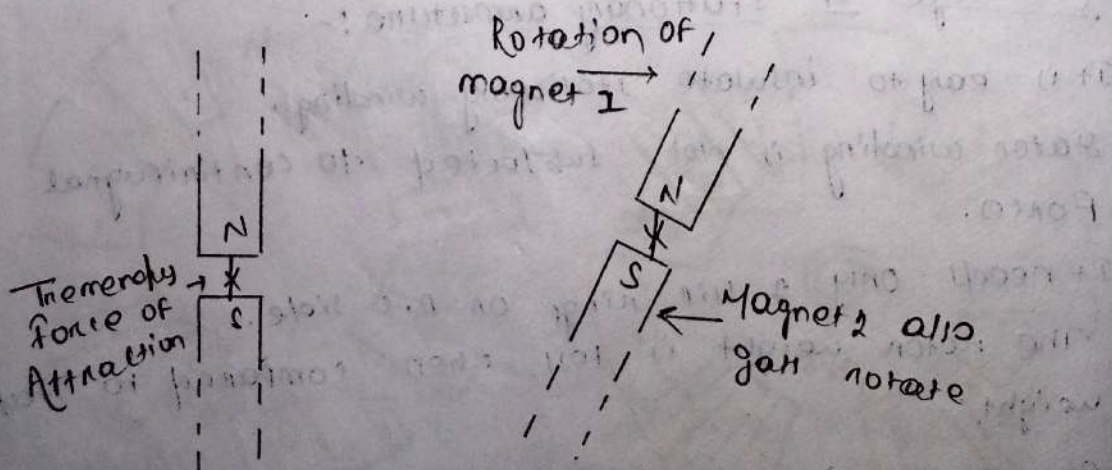 Rotation of
magnet 1
N
S
Tremendus
Force of
Attraction
N
S
Magnet 2 also
gats rotate